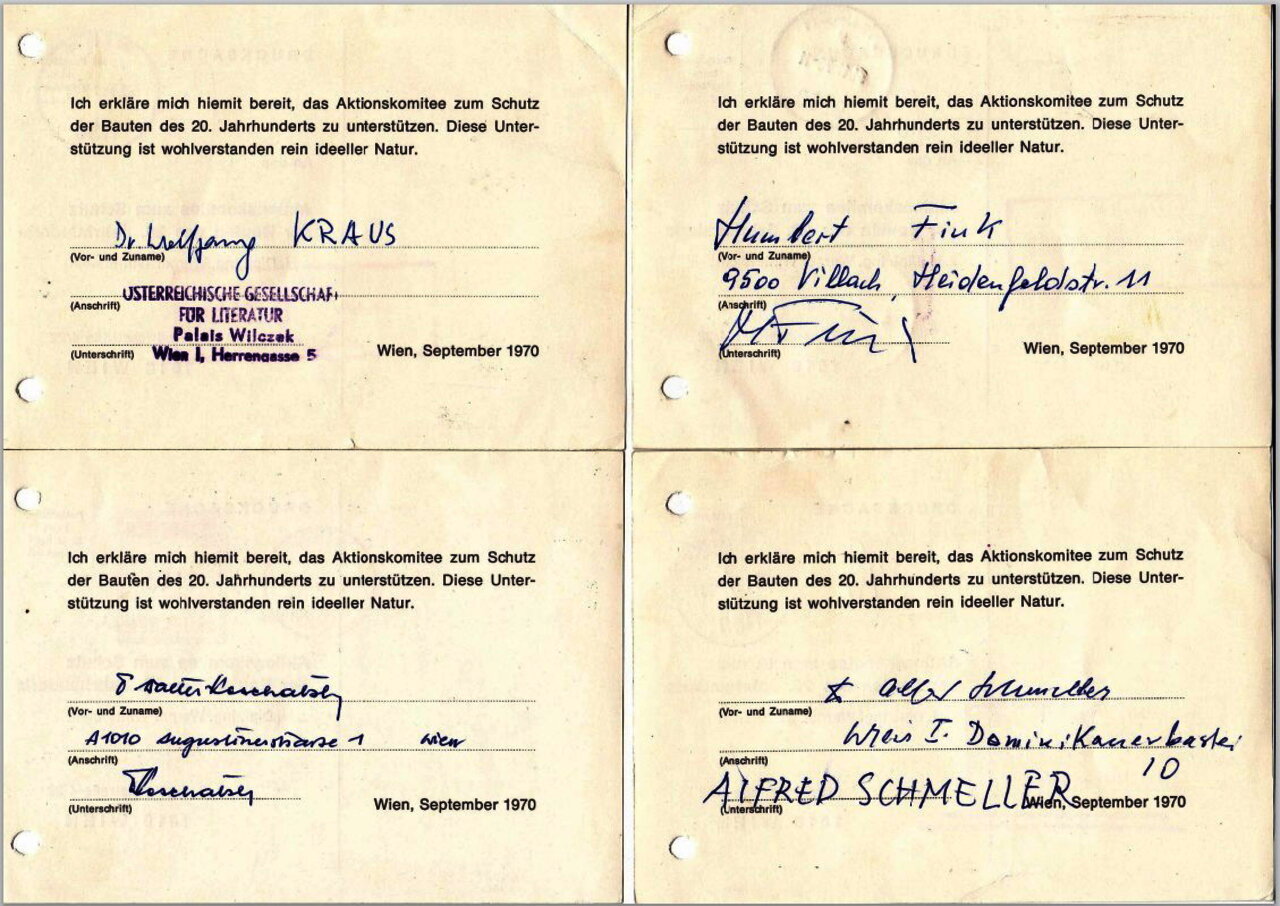 Ich erkläre mich hiemit bereit, das Aktionskomitee zum Schutz
der Bauten des 20. Jahrhunderts zu unterstützen. Diese Unter-
stützung ist wohlverstanden rein ideeller Natur.
Dr. Wolfgang KRAUS
(Vor- und Zuname)
ÖSTERREICHISCHE GESELLSCHAFT
(Anschrift)
FÜR LITERATUR
Palais Wilczek
(Unterschrift) Wien I, Herrengasse 5 Wien, September 1970
Ich erkläre mich hiemit bereit, das Aktionskomitee zum Schutz
der Bauten des 20. Jahrhunderts zu unterstützen. Diese Unter-
stützung ist wohlverstanden rein ideeller Natur.
Humbert Fink
(Vor- und Zuname)
9500 Villach, Heidenfeldstr. 11
(Anschrift)
(Unterschrift) Wien, September 1970
Ich erkläre mich hiemit bereit, das Aktionskomitee zum Schutz
der Bauten des 20. Jahrhunderts zu unterstützen. Diese Unter-
stützung ist wohlverstanden rein ideeller Natur.
Walter Koschatzky
(Vor- und Zuname)
A1010 Augustinerstrasse 1 Wien
(Anschrift)
Koschatzky
(Unterschrift) Wien, September 1970
Ich erkläre mich hiemit bereit, das Aktionskomitee zum Schutz
der Bauten des 20. Jahrhunderts zu unterstützen. Diese Unter-
stützung ist wohlverstanden rein ideeller Natur.
Alfred Schmeller
(Vor- und Zuname)
Wien I. Dominikanerbastei
(Anschrift) 10
ALFRED SCHMELLER
(Unterschrift) Wien, September 1970